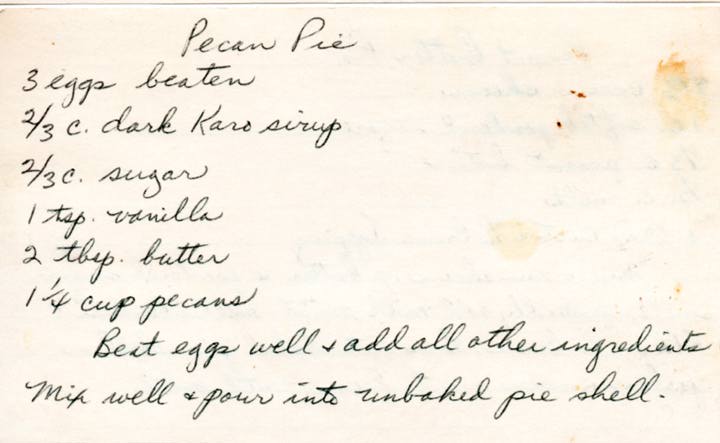 Pecan Pie
3 eggs beaten
2/3 c. dark Karo sirup
2/3 c. sugar
1 tsp. vanilla
2 tbsp. butter
1 1/4 cup pecans
Beat eggs well & add all other ingredients
Mix well & pour into unbaked pie shell.